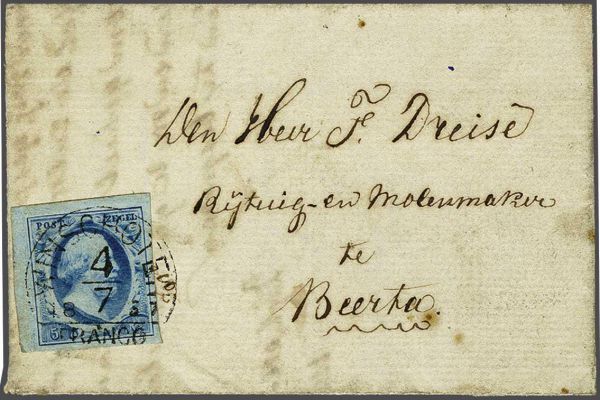 Den Heer F. Dreise
Rijtuig- en Molenmaker
te
Beerta.
POST ZEGEL
4
7
FRANCO